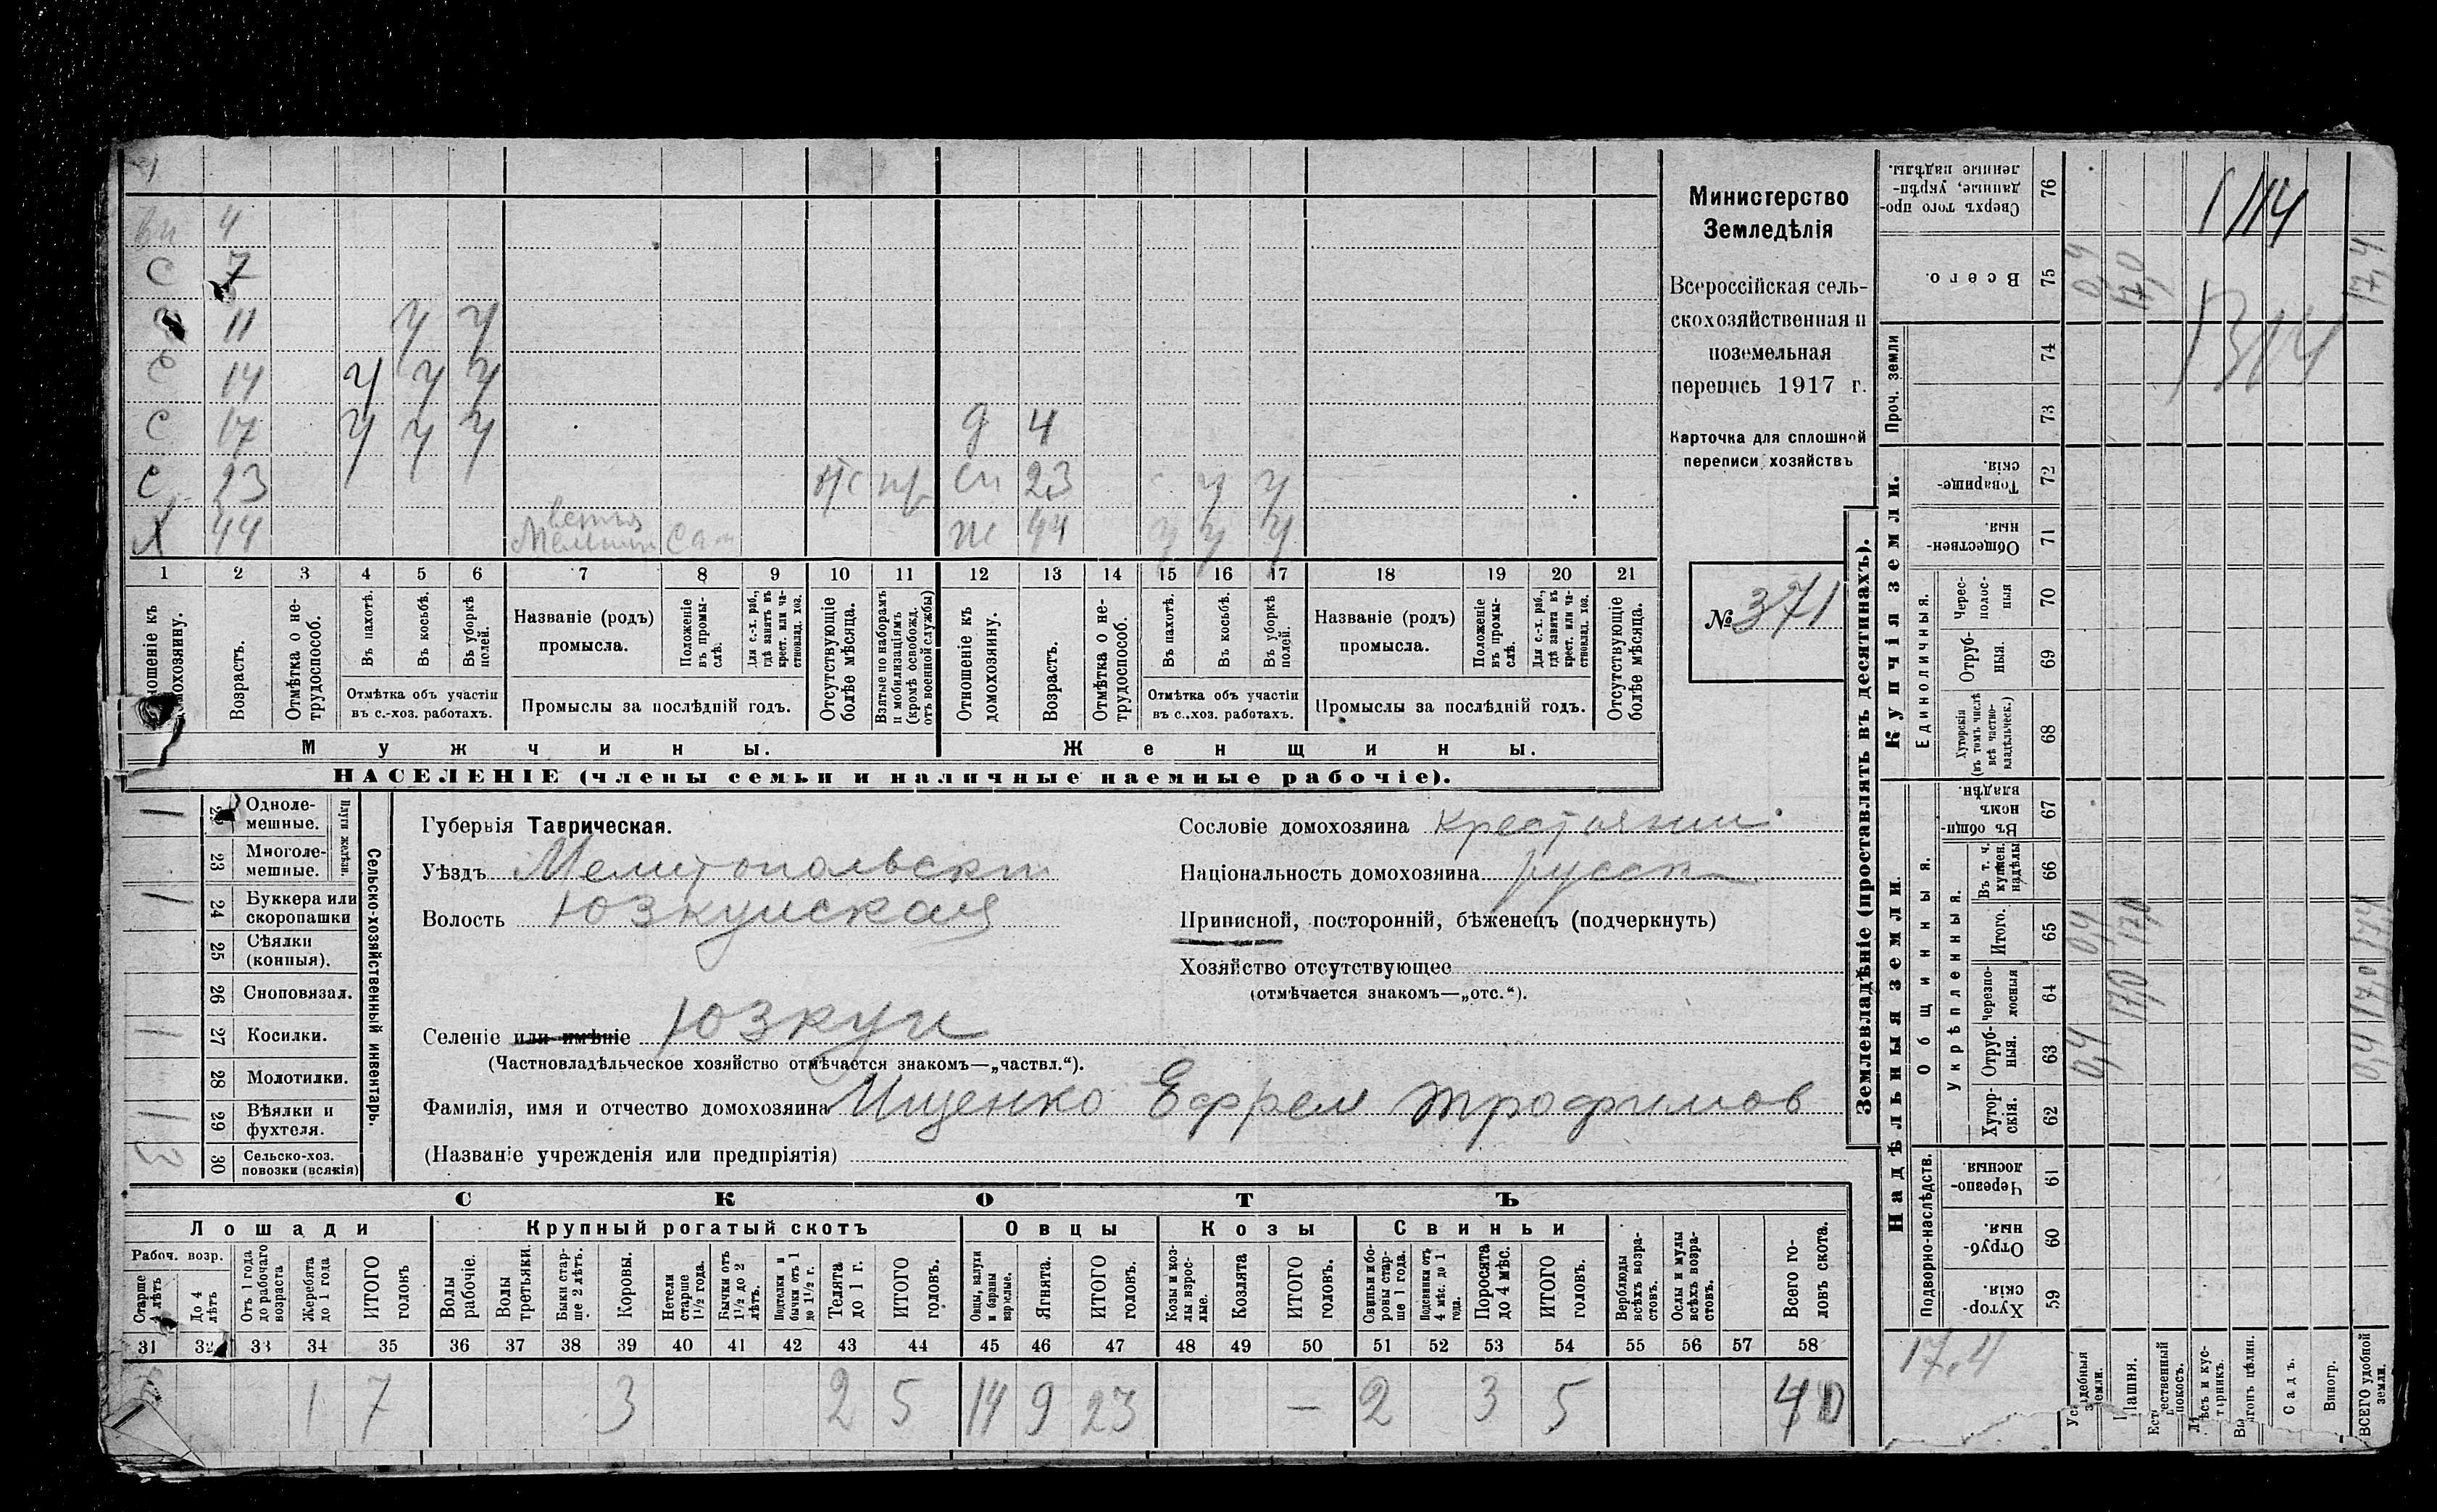 вн 4
С 7
11 у у
С 14 у у у
С 17 у у у д 4
С 23 сн 23 у у
Х 44 Сам ж 44 у у у
1 2 3 4 5 6 7 8 9 10 11 12 13 14 15 16 17 18 19 20 21
Отношеніе къ домохозяину.
Возрастъ.
Отмѣтка о не-трудоспособ.
Въ пахотѣ.
Въ косьбѣ.
Въ уборкѣ полей.
Отмѣтка объ участіи въ с.-хоз. работахъ.
Названіе (родъ) промысла.
Положеніе въ промы-слѣ.
Для с.-х. раб., гдѣ занятъ въ крест. или ча-стновлад. хоз.
Промыслы за послѣдній годъ.
Отсутствующіе болѣе мѣсяца.
Взятые по наборамъ и мобилизаціямъ (кромѣ освобожд. отъ военной службы)
Отношеніе къ домохозяину.
Возрастъ.
Отмѣтка о не-трудоспособ.
Въ пахотѣ.
Въ косьбѣ.
Въ уборкѣ полей.
Отмѣтка объ участіи въ с.-хоз. работахъ.
Названіе (родъ) промысла.
Положеніе въ промы-слѣ.
Для с.-х. раб., гдѣ занята въ крест. или ча-стновлад. хоз.
Промыслы за послѣдній годъ.
Отсутствующіе болѣе мѣсяца.
Мужчины.
Женщины.
НАСЕЛЕНІЕ (члены семьи и наличные наемные рабочіе).
Министерство
Земледѣлія
Всероссійская сель-
скохозяйственная и
поземельная
перепись 1917 г.
Карточка для сплошной
переписи хозяйствъ
№ 371
1 Одноле-мешные.
23 Многоле-мешные.
Плуги желѣзн.
1 24 Буккера или скоропашки
25 Сѣялки (конныя).
26 Сноповязал.
1 27 Косилки.
28 Молотилки.
1 29 Вѣялки и фухтеля.
3 30 Сельско-хоз. повозки (всякія)
Сельско-хозяйственный инвентарь.
Губернія Таврическая.
Уѣздъ Мелитопольскій
Волость Юзкуйская
Селеніе или имѣніе Юзкуи
(Частновладѣльческое хозяйство отмѣчается знакомъ—„частвл.“).
Фамилія, имя и отчество домохозяина Ищенко Ефрем Трофимов
(Названіе учрежденія или предпріятія)
Сословіе домохозяина крестьянин
Національность домохозяина русск
Приписной, посторонній, бѣженецъ (подчеркнуть)
Хозяйство отсутствующее
(отмѣчается знакомъ—„отс.“).
СКОТЪ
Лошади
Крупный рогатый скотъ
Овцы
Козы
Свиньи
Рабоч. возр.
Старше 4 лѣтъ
До 4 лѣтъ
Отъ 1 года до рабочаго возраста
Жеребята до 1 года
ИТОГО головъ
Волы рабочіе.
Волы третьяки.
Быки стар-ше 2 лѣтъ.
Коровы.
Нетели старше 1½ года.
Бычки отъ 1½ до 2 лѣтъ.
Подтелки и бычки отъ 1 до 1½ г.
Телята до 1 г.
ИТОГО головъ.
Овцы, валухи и бараны взрослые.
Ягнята.
ИТОГО головъ.
Козы и коз-лы взрос-лые.
Козлята
ИТОГО головъ.
Свиньи и бо-ровы стар-ше 1 года.
Подсвинки отъ 4 мѣс. до 1 года.
Поросята до 4 мѣс.
ИТОГО головъ.
Верблюды всѣхъ возра-стовъ.
Ослы и мулы всѣхъ возра-стовъ.
Всего го-ловъ скота.
31 32 33 34 35 36 37 38 39 40 41 42 43 44 45 46 47 48 49 50 51 52 53 54 55 56 57 58
1 7 3 2 5 14 9 23 — 2 3 5 40
Землевладѣніе (проставлять въ десятинахъ).
Купчія земли.
Надѣльныя земли.
Сверхъ того про-данные, укрѣп-ленные надѣлы. 76
Всего. 75 0,4 17,0 17,4
Проч. земли 74 73
Товарище-скія. 72
Обществен-ныя. 71
Единоличныя.
Черес-полос-ныя 70
Отруб-ныя. 69
Хуторскія (въ томъ числѣ всѣ частно-владѣльческ.) 68
Общинныя.
Въ общин-номъ владѣн. 67
Укрѣпленныя.
Въ т. ч. куплен. надѣлы 66
Итого. 65 0,4 17,0 17,4
Черезпо-лосныя 64 17,0 17,0
Отруб-ныя. 63 0,4 0,4
Хутор-скія. 62
Подворно-наслѣдств.
Черезпо-лосныя 61
Отруб-ныя. 60
Хутор-скія. 59
17,4
Усадебныя земли.
Пашня.
Естественный покосъ.
Лѣсъ и кус-тарникъ.
Выгонъ цѣлин.
Садъ.
Виногр.
ВСЕГО удобной земли.